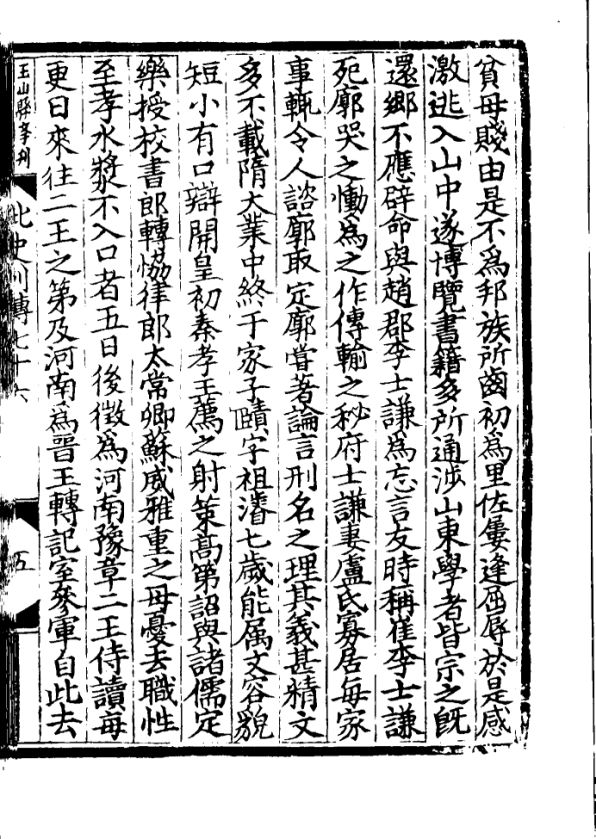 貧母賤由是不爲邦族所齒初爲里佐屢逢屈辱於是感
激逃入山中遂博覽書籍多所通涉山東學者皆宗之旣
還鄉不應辟命與趙郡李士謙爲忘言友時稱崔李士謙
死廓哭之慟爲之作傳輸之秘府士謙妻盧氏寡居每家
事輒令人諮廓取定廓嘗著論言刑名之理其義甚精文
多不載隋大業中終于家子賾字祖濬七歲能属文容貌
短小有口辯開皇初秦孝王薦之射策高第詔與諸儒定
樂授校書郎轉協律郎太常卿蘇威雅重之母憂去職性
至孝水漿不入口者五日後徵爲河南豫章二王侍讀每
更日來往二王之第及河南爲晉王轉記室參軍自此去
玉山縣學刋
北史列傳七十六
五